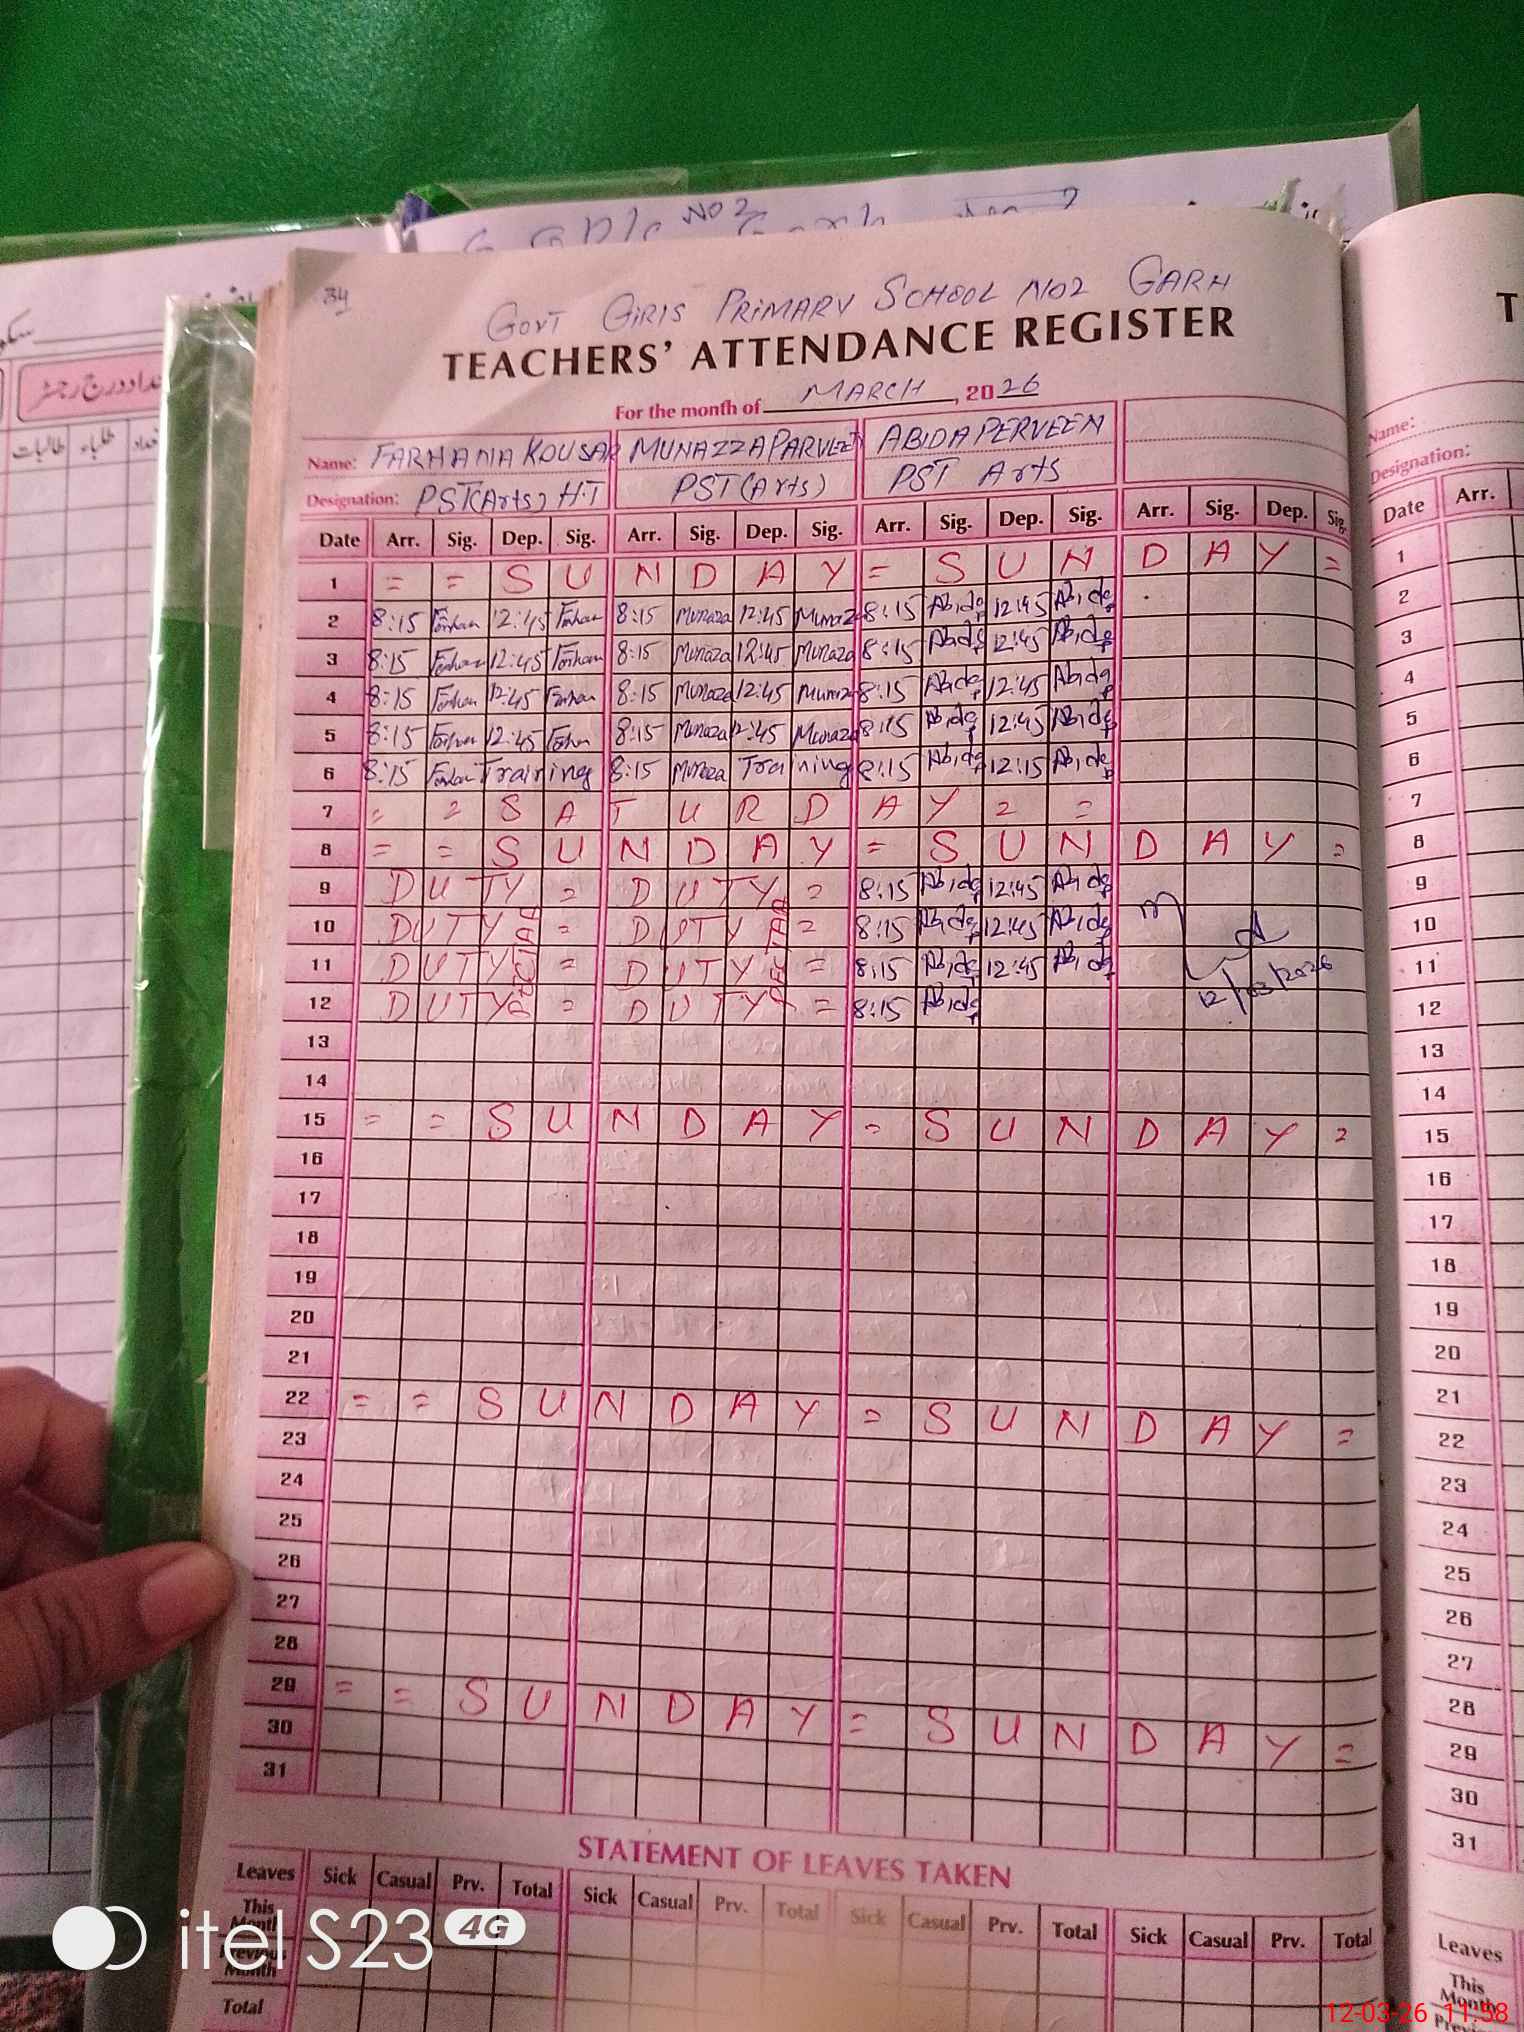 NO 2
34
GOVT GIRIS PRIMARY SCHOOL NO2 GARH
TEACHERS' ATTENDANCE REGISTER
For the month of MARCH, 2026
Name: FARHANA KOUSAR MUNAZZA PARVEEN ABIDA PERVEEN
Designation: PST(Arts) H.T PST(Arts) PST Arts
Date Arr. Sig. Dep. Sig. Arr. Sig. Dep. Sig. Arr. Sig. Dep. Sig. Arr. Sig. Dep. Sig.
1 = = S U N D A Y = S U N D A Y =
2 8:15 Farhan 12:45 Farhan 8:15 Munaza 12:45 Munaza 8:15 Abida 12:45 Abida
3 8:15 Farhan 12:45 Farhan 8:15 Munaza 12:45 Munaza 8:15 Abida 12:45 Abida
4 8:15 Farhan 12:45 Farhan 8:15 Munaza 12:45 Munaza 8:15 Abida 12:45 Abida
5 8:15 Farhan 12:45 Farhan 8:15 Munaza 12:45 Munaza 8:15 Abida 12:45 Abida
6 8:15 Farhan Training 8:15 Munaza Training 8:15 Abida 12:15 Abida
7 = = S A T U R D A Y = =
8 = = S U N D A Y = S U N D A Y =
9 DUTY = DUTY = 8:15 Abida 12:45 Abida
10 DUTY = DUTY = 8:15 Abida 12:45 Abida
11 DUTY = DUTY = 8:15 Abida 12:45 Abida
12 DUTY = DUTY = 8:15 Abida
12/03/2026
13
14
15 = = S U N D A Y = S U N D A Y =
16
17
18
19
20
21
22 = = S U N D A Y = S U N D A Y =
23
24
25
26
27
28
29 = = S U N D A Y = S U N D A Y =
30
31
STATEMENT OF LEAVES TAKEN
Leaves Sick Casual Prv. Total Sick Casual Prv. Total Sick Casual Prv. Total Sick Casual Prv. Total
This Month
Previous Month
Total
Name:
Designation:
Date Arr.
1
2
3
4
5
6
7
8
9
10
11
12
13
14
15
16
17
18
19
20
21
22
23
24
25
26
27
28
29
30
31
Leaves
This Month
طالبات طلباء تعداد
itel S23 4G
12-03-26 11:58